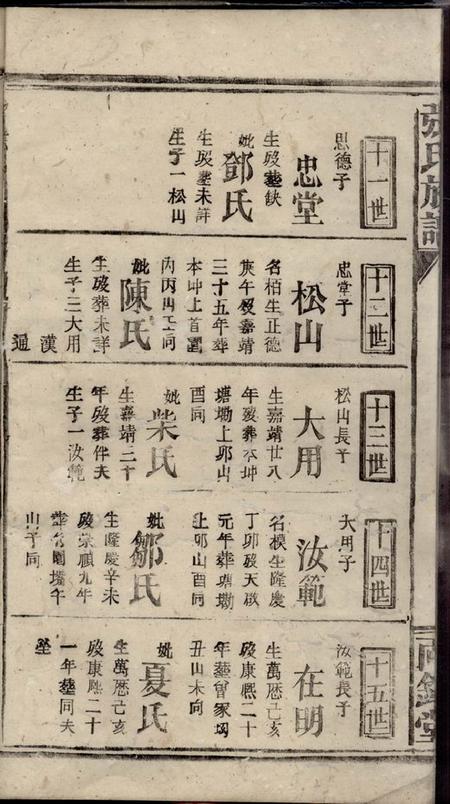 張氏族譜
十一世
思德子
忠堂
生歿塟缺
妣鄧氏
生歿塟未詳
生子一松山
十二世
忠堂子
松山
名栢生正德
庚午歿嘉靖
三十五年葬
本坤上首
丙丙山壬向
妣陳氏
生歿葬未詳
生子三大用
漢
通
十三世
松山長子
大用
生嘉靖廿八
年歿葬本坤
塘塲上卯山
酉向
妣柴氏
生嘉靖三十
年歿葬伴夫
生子一汝範
十四世
大用子
汝範
名模生隆慶
丁卯歿天啟
元年葬塘塲
上卯山酉向
妣鄒氏
生隆慶辛未
歿崇禎九年
葬園塲午
山子向
十五世
汝範長子
在明
生萬歷己亥
歿康熙二十
年塟曾家坳
丑山未向
妣夏氏
生萬歷己亥
歿康熙二十
一年塟同夫
塋
堂